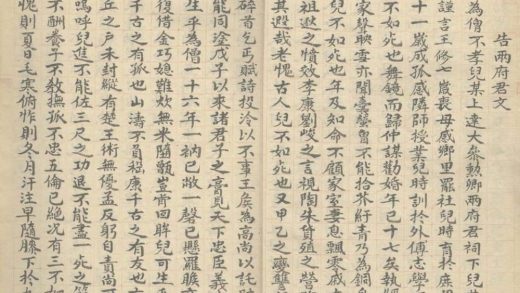 告兩府君文
為僧不孝兒某上達大叅勳卿兩府君祠下兒
謹言王修七歲喪母感鄉里罷社兒時育於庶
十一歲成孤感隣師授業兒時訓於外傅志學
不如死也舞鏡而歸仲謀勸婚年已十七矣執
家聲映雪亦聞臺曾不能拾芥紆青乃為銅
兒不如死也年及知命不顧家室妻息飄零
祖逖之憤效李康劉峻之言視陶朱貨殖之營
其遐哉老愧古人兒不如死也又甲乙之
碎首乞丐賦詩投泠以不事王侯為高尚以託
能同塗戊子以來諸君子之膏見天下忠臣義
生乎為僧一十六年一衲已敝一磬已懸羅
復惜金巧媳難炊無米隨甑豈肯回眸兒可生
千古之有孤也山濤不負嵇康千古之有友也
丘之戶未封縱有楚王術無優孟反躬自責尚
嗚呼兒進不能佐三尺之功退不能盡一死之
不酬養子不教撫孤不忠五倫已絕況有三不
愧則夏日毛寒俯怍則冬月汗注早隨膝下於